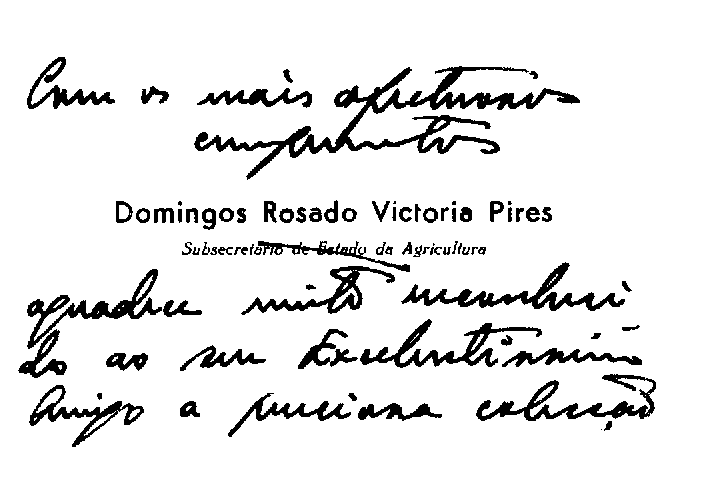 Com os mais afectuosos
cumprimentos
Domingos Rosado Victoria Pires
Subsecretário de Estado da Agricultura
agradece muito reconheci
do ao seu Excelentíssimo
Amigo a preciosa colecção